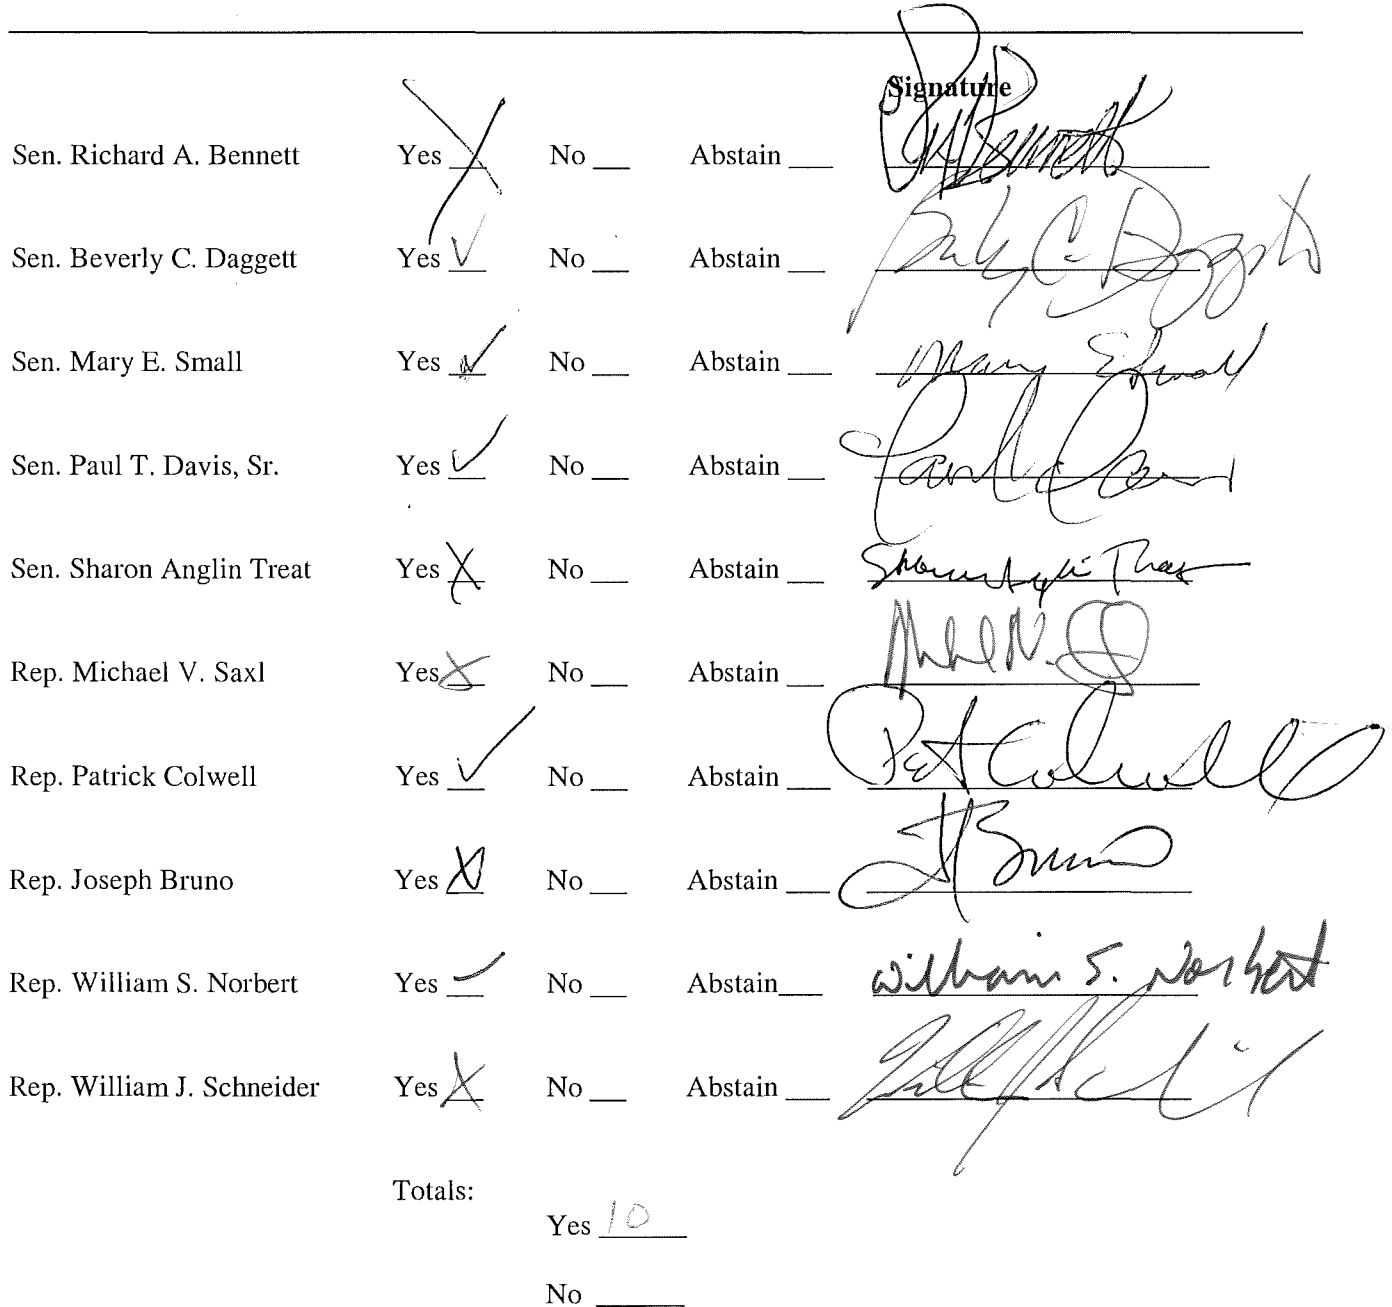 Signature
Sen. Richard A. Bennett Yes X No __ Abstain __ RABennett
Sen. Beverly C. Daggett Yes ✓ No __ Abstain __ Beverly C. Daggett
Sen. Mary E. Small Yes ✓ No __ Abstain __ Mary E Small
Sen. Paul T. Davis, Sr. Yes ✓ No __ Abstain __ Paul Davis
Sen. Sharon Anglin Treat Yes X No __ Abstain __ Sharon Anglin Treat
Rep. Michael V. Saxl Yes X No __ Abstain __
Rep. Patrick Colwell Yes ✓ No __ Abstain __ Pat Colwell
Rep. Joseph Bruno Yes X No __ Abstain __ J Bruno
Rep. William S. Norbert Yes ✓ No __ Abstain __ William S. Norbert
Rep. William J. Schneider Yes X No __ Abstain __
Totals:
Yes 10
No ____